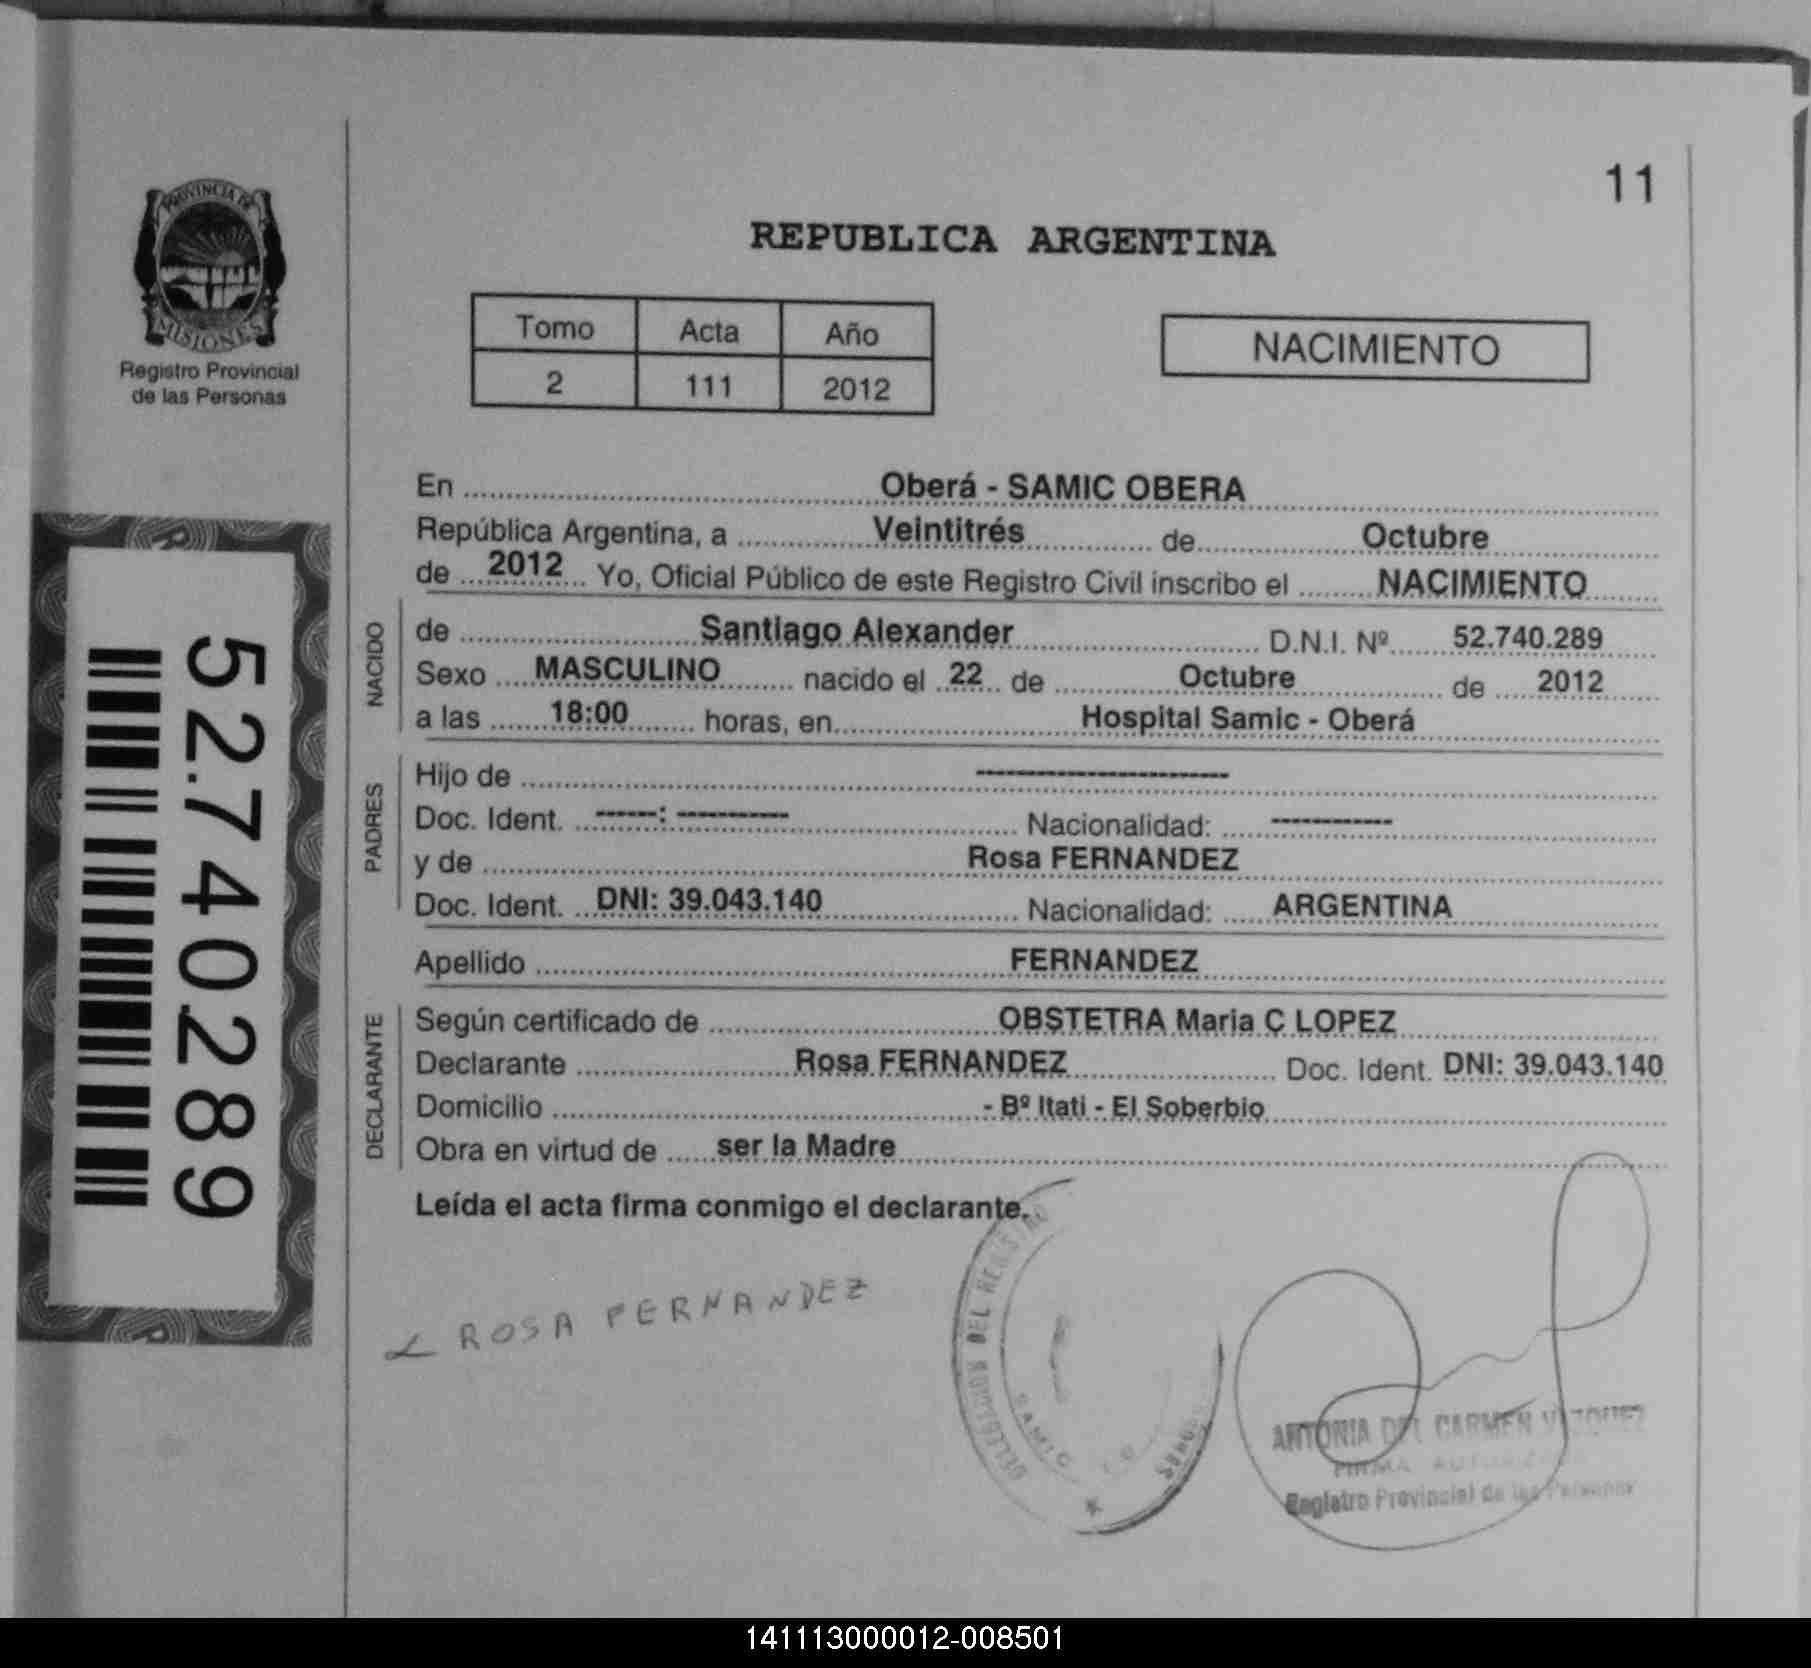 11
PROVINCIA DE
MISIONES
Registro Provincial
de las Personas
REPUBLICA ARGENTINA
Tomo Acta Año
2 111 2012
NACIMIENTO
52.740.289
En Oberá - SAMIC OBERA
República Argentina, a Veintitrés de Octubre
de 2012 Yo, Oficial Público de este Registro Civil inscribo el NACIMIENTO
NACIDO
de Santiago Alexander D.N.I. Nº 52.740.289
Sexo MASCULINO nacido el 22 de Octubre de 2012
a las 18:00 horas, en Hospital Samic - Oberá
PADRES
Hijo de -----------------------
Doc. Ident. ------: ----------- Nacionalidad: ------------
y de Rosa FERNANDEZ
Doc. Ident. DNI: 39.043.140 Nacionalidad: ARGENTINA
Apellido FERNANDEZ
DECLARANTE
Según certificado de OBSTETRA Maria C LOPEZ
Declarante Rosa FERNANDEZ Doc. Ident. DNI: 39.043.140
Domicilio - Bº Itati - El Soberbio
Obra en virtud de ser la Madre
Leída el acta firma conmigo el declarante.
ROSA FERNANDEZ
DELEGACION DEL REGISTRO
SAMIC
ANTONIA DEL CARMEN VAZQUEZ
FIRMA AUTORIZADA
Registro Provincial de las Personas
141113000012-008501